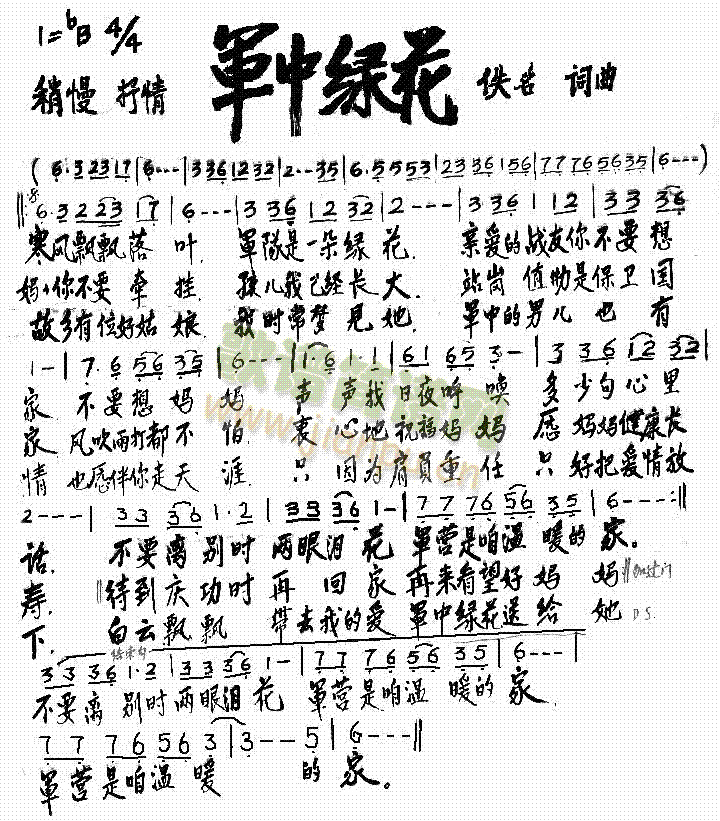 1=♭B 4/4
軍中绿花
稍慢 抒情
佚名 词曲
(6·32317|6---|336123 2|2--35|6·5553|2336156|77765635|6---)
‖:6·32231 7|6---|336 1232|2---|336 112|33 36
寒风飘飘落 叶. 軍隊是一朵绿 花. 亲爱的战友你不要想
妈妈你不要 牵 挂. 孩儿我已经长大. 站岗 值勤是保卫国
故乡有位好姑 娘. 我时常梦見她. 軍中的男儿 也 有
1-|7·65635|6---|1·61·1|61653-|336 1232|
家 不要想 妈 妈 声 声我日夜呼 唤 多 少句心里
家 风吹雨打都不 怕 衷 心地祝福妈 妈 愿 妈妈健康长
情 也愿伴你走天 涯 只 因为肩負重 任 只 好把爱情放
2---|33361·2|33361-|77765635|6---:‖
话. 不要离别时 两眼泪 花 軍营是咱温 暖的家.
寿. ‖待到庆功时再 回 家 再来看望好 妈 妈‖
下. 白云飘飘 带去我的爱 軍中绿花送 给 她 D.S.
结束句
33361·2|33361-|77765635|6---|
不要离 别时两眼泪花 軍营是咱温 暖的 家.
7776563|3--5|6---‖
軍营是咱温暖 的 家.
歌谱简谱网
www.jianpu.cn